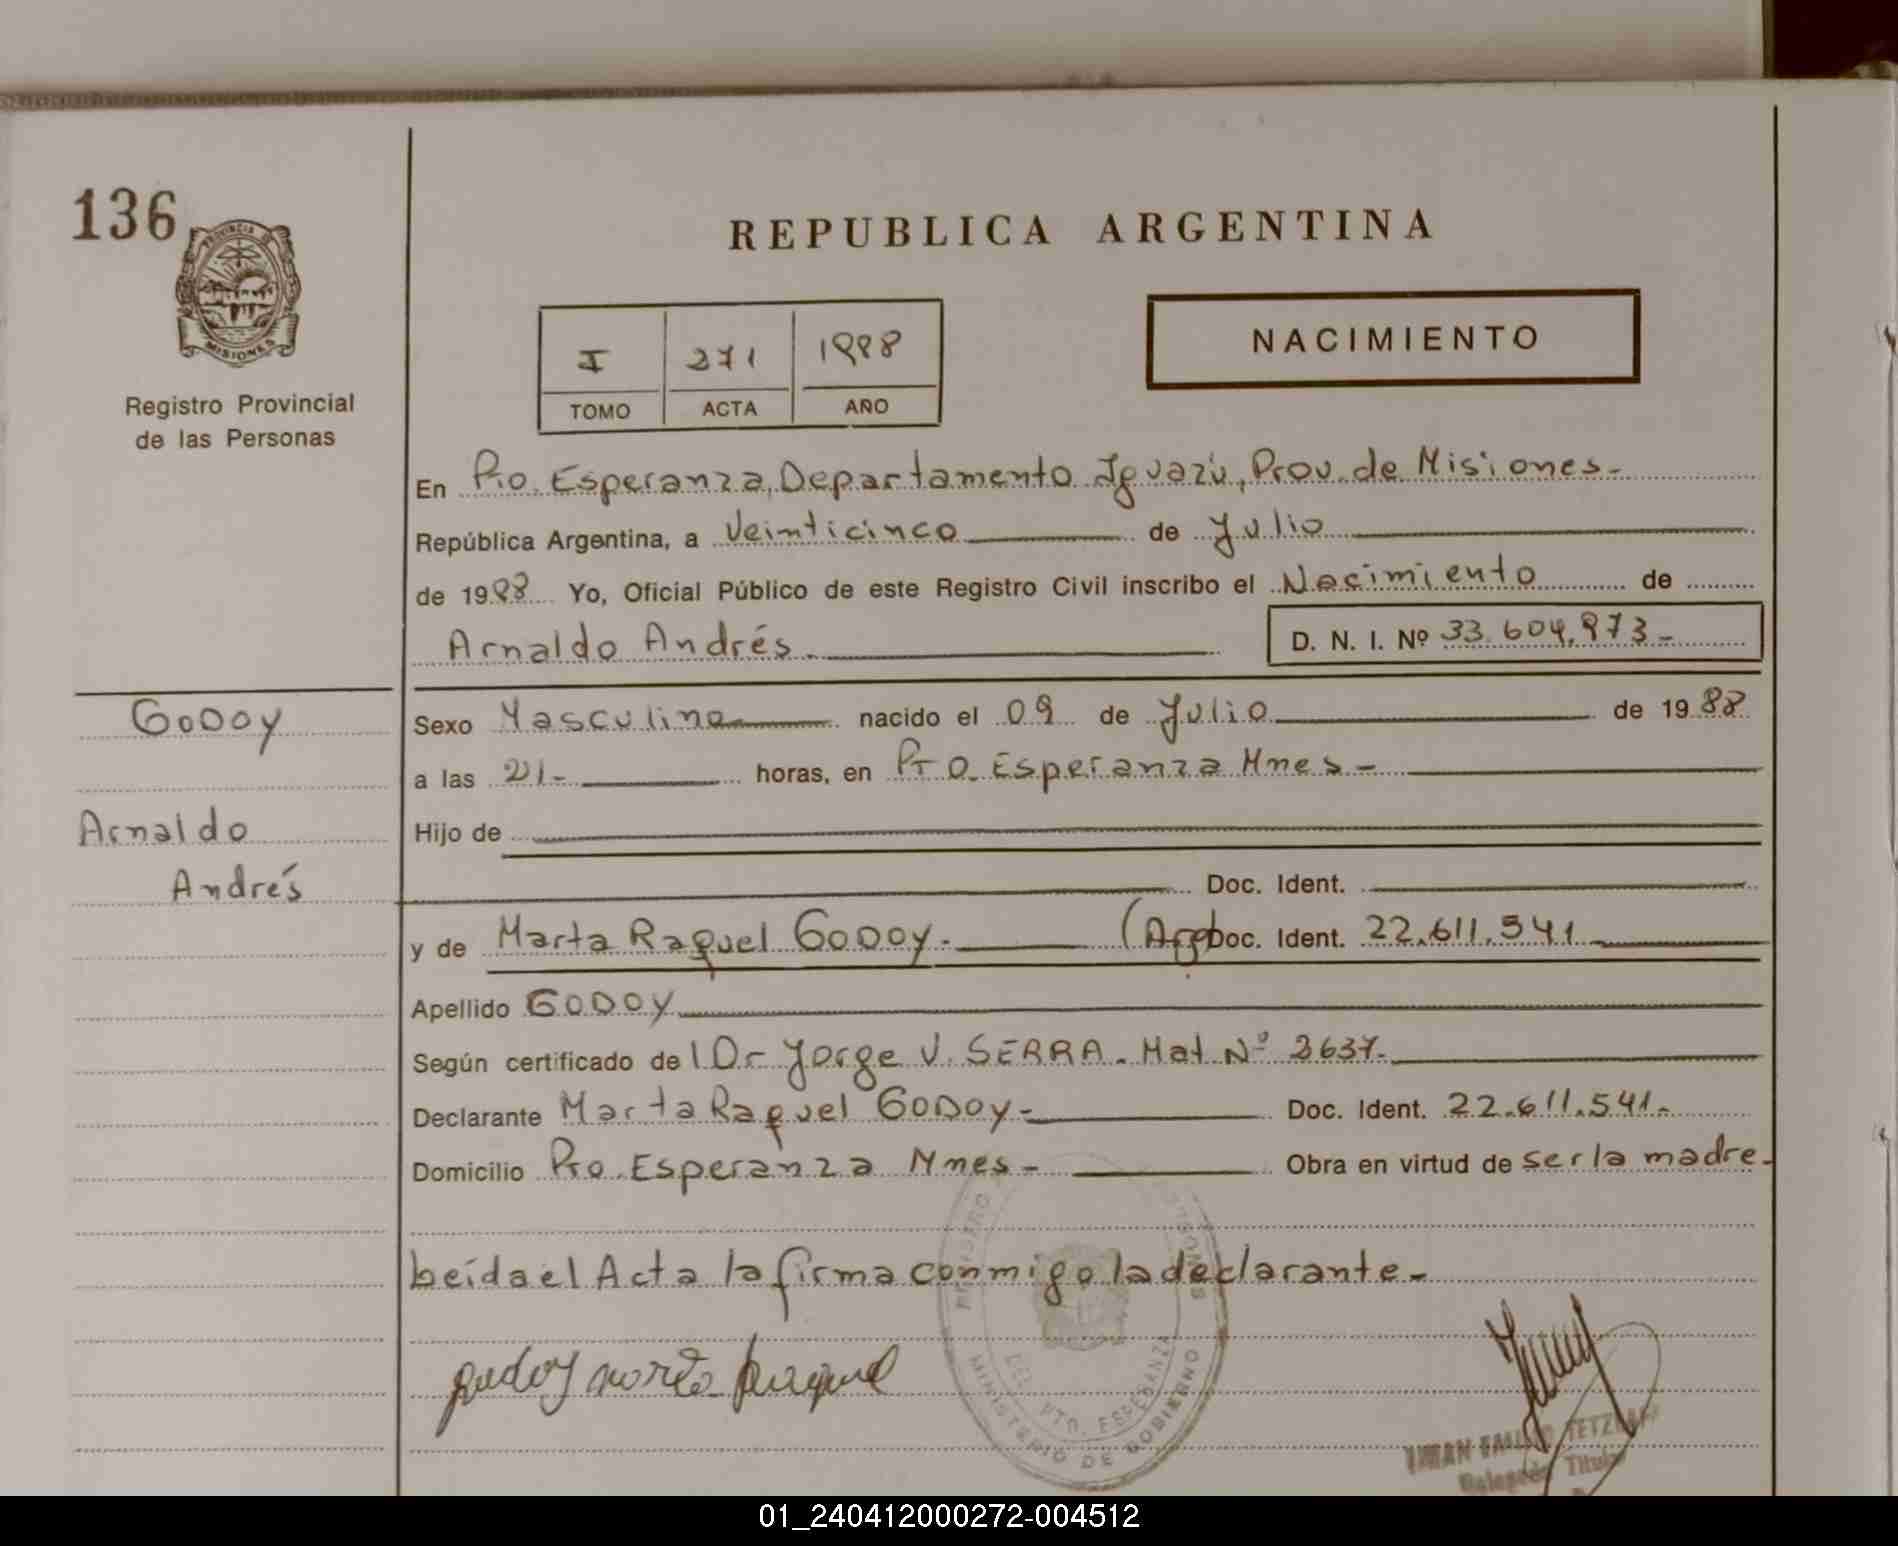 136
PROVINCIA DE
MISIONES
Registro Provincial
de las Personas
REPUBLICA ARGENTINA
I 271 1988
TOMO ACTA AÑO
NACIMIENTO
En Pto. Esperanza, Departamento Iguazú, Prov. de Misiones-
República Argentina, a Veinticinco de Julio
de 1988 Yo, Oficial Público de este Registro Civil inscribo el Nacimiento de
Arnaldo Andrés. D. N. I. Nº 33.604.973-
GODOY
Arnaldo
Andrés
Sexo Masculino nacido el 09 de Julio de 1988
a las 21- horas, en Pto. Esperanza Mnes-
Hijo de
Doc. Ident.
y de Marta Raquel GODOY. (Arg) Doc. Ident. 22.611.541
Apellido GODOY
Según certificado del Dr Jorge V. SERRA. Mat Nº 3637.
Declarante Marta Raquel GODOY- Doc. Ident. 22.611.541.
Domicilio Pto. Esperanza Mnes- Obra en virtud de ser la madre-
Leída el Acta la firma conmigo la declarante-
godoy marta Raquel
REGISTRO
PTO. ESPERANZA
MINISTERIO DE GOBIERNO
Delegado Titular
01_240412000272-004512